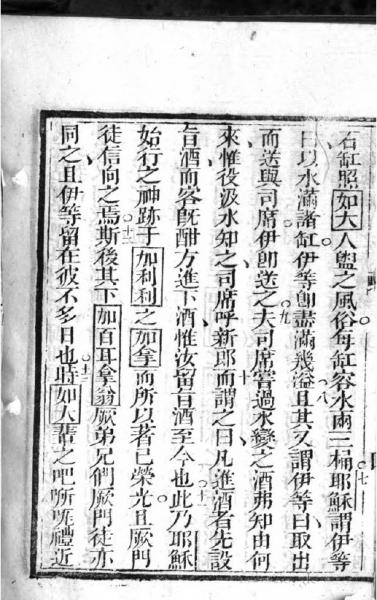 石缸照如大人盥之風俗每缸容水兩三桶耶穌謂伊等
曰以水滿諸缸伊等卽盡滿幾溢且其又謂伊等曰取出
而送與司席伊卽送之夫司席嘗過水變之酒弗知由何
來惟役汲水知之司席呼新郎而謂之曰凡進酒者先設
旨酒而客旣酣方進下酒惟汝留旨酒至今也此乃耶穌
始行之神跡于加利利之加拿而所以著已榮光且厥門
徒信向之焉斯後其下加百耳拿翁厥弟兄們厥門徒亦
同之且伊等留在彼不多日也時如大輩之吧所咣禮近
七
八
九
十
十一
十二